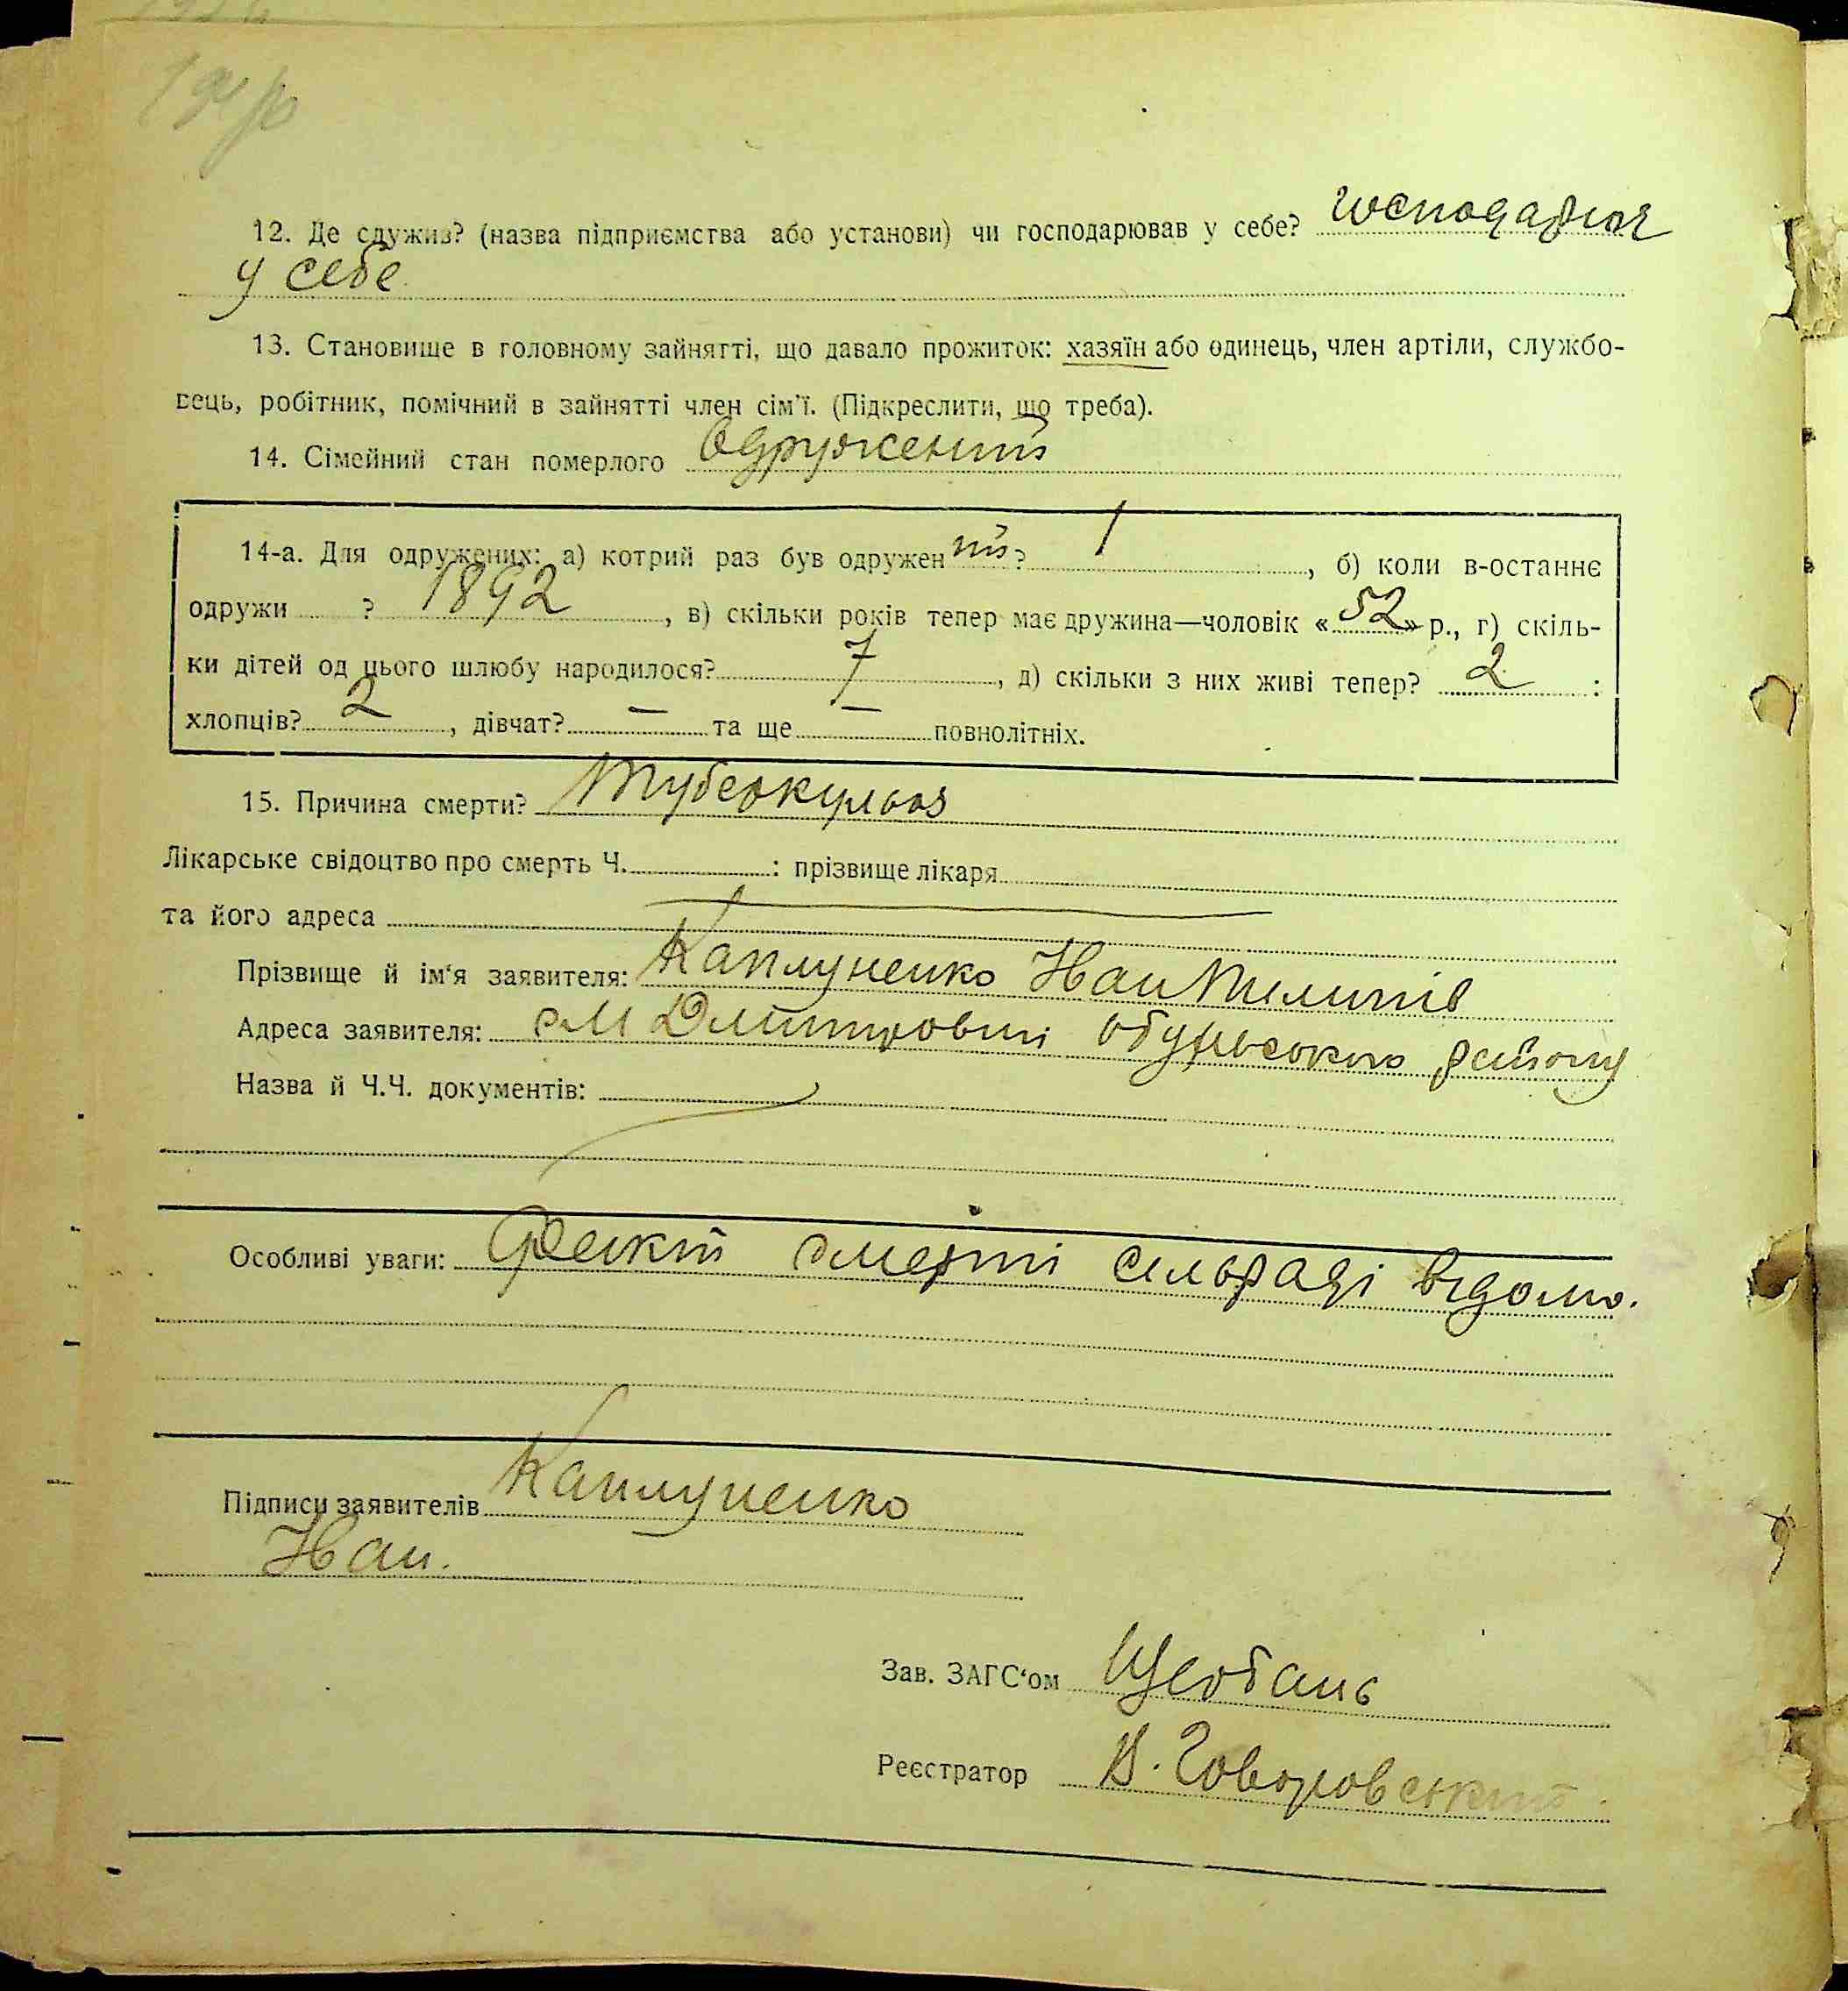 12. Де служив? (назва підприємства або установи) чи господарював у себе? господарюв
у себе
13. Становище в головному зайнятті, що давало прожиток: хазяїн або одинець, член артіли, службо-
вець, робітник, помічний в зайнятті член сім'ї. (Підкреслити, що треба).
14. Сімейний стан померлого Одружений
14-а. Для одружених: а) котрий раз був одружений? 1, б) коли в-останнє
одружи ? 1892, в) скільки років тепер має дружина—чоловік «52» р., г) скіль-
ки дітей од цього шлюбу народилося? 7, д) скільки з них живі тепер? 2 :
хлопців? 2, дівчат? — та ще — повнолітніх.
15. Причина смерти? Туберкульоз
Лікарське свідоцтво про смерть Ч. : прізвище лікаря
та його адреса
Прізвище й ім'я заявителя: Каплуненко Нап
Адреса заявителя: См Дмитровці району
Назва й Ч.Ч. документів:
Особливі уваги: Факт смерті сільраді відомо.
Підписи заявителів Каплуненко
Нап.
Зав. ЗАГС'ом
Реєстратор В. Говоровський